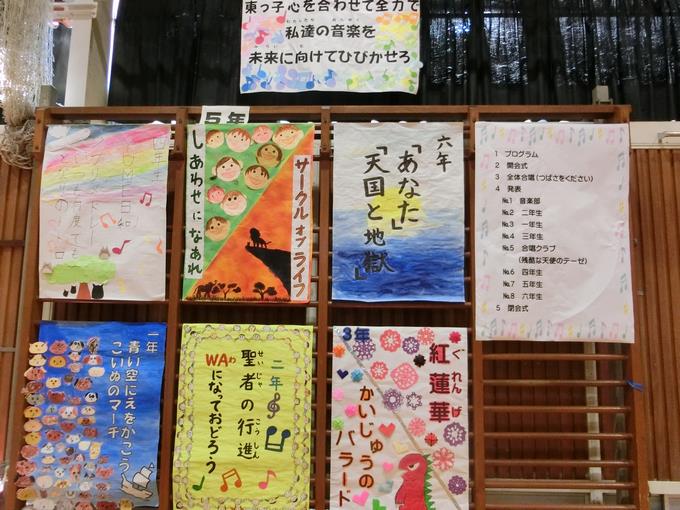 東っ子心を合わせて全力で
私達の音楽を
未来に向けてひびかせろ
5年
しあわせになあれ
サークル オブ ライフ
六年
「あなた」
「天国と地獄」
1 プログラム
2 開会式
3 全体合唱(つばさをください)
4 発表
№1 音楽部
№2 二年生
№3 一年生
№4 三年生
№5 合唱クラブ
(残酷な天使のテーゼ)
№6 四年生
№7 五年生
№8 六年生
5 閉会式
一年
青い空にえをかこう
こいぬのマーチ
二年
聖者の行進
せいじゃ こうしん
WAわ
になっておどろう
3年
紅蓮華
ぐれんげ
かいじゅうの
バラード